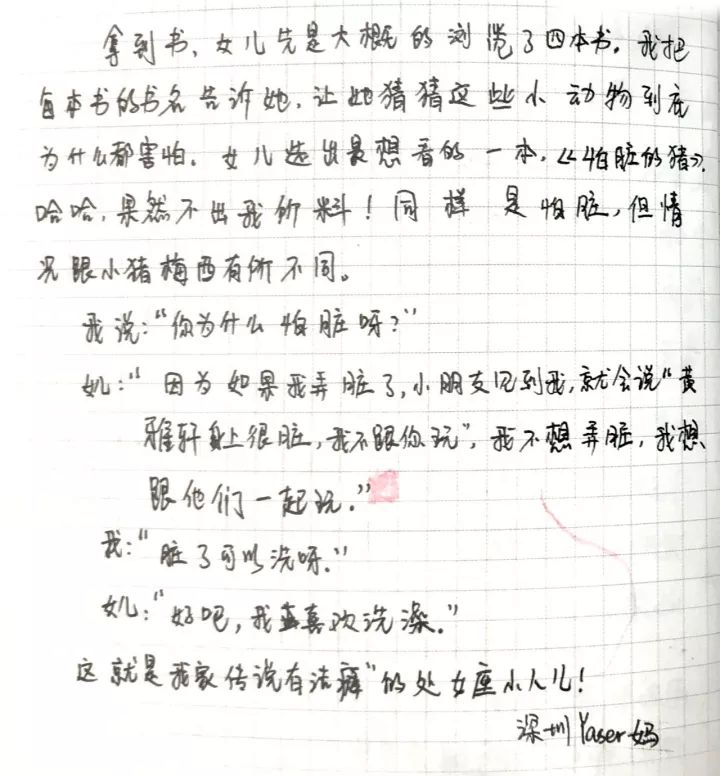 拿到书、女儿先是大概的浏览了四本书。我把
每本书的书名告诉她，让她猜猜这些小动物到底
为什么都害怕。女儿选出最想看的一本，《怕脏的猪》。
哈哈，果然不出我所料！同样是怕脏，但情
况跟小猪梅西有所不同。
我说：“你为什么怕脏呀？”
女儿：“因为如果我弄脏了，小朋友见到我，就会说“黄
雅轩身上很脏，我不跟你玩”，我不想弄脏，我想
跟他们一起玩。”
我：“脏了可以洗呀。”
女儿：“好吧，我喜欢洗澡。”
这就是我家传说有洁癖”的处女座小人儿！
深圳Yaser妈